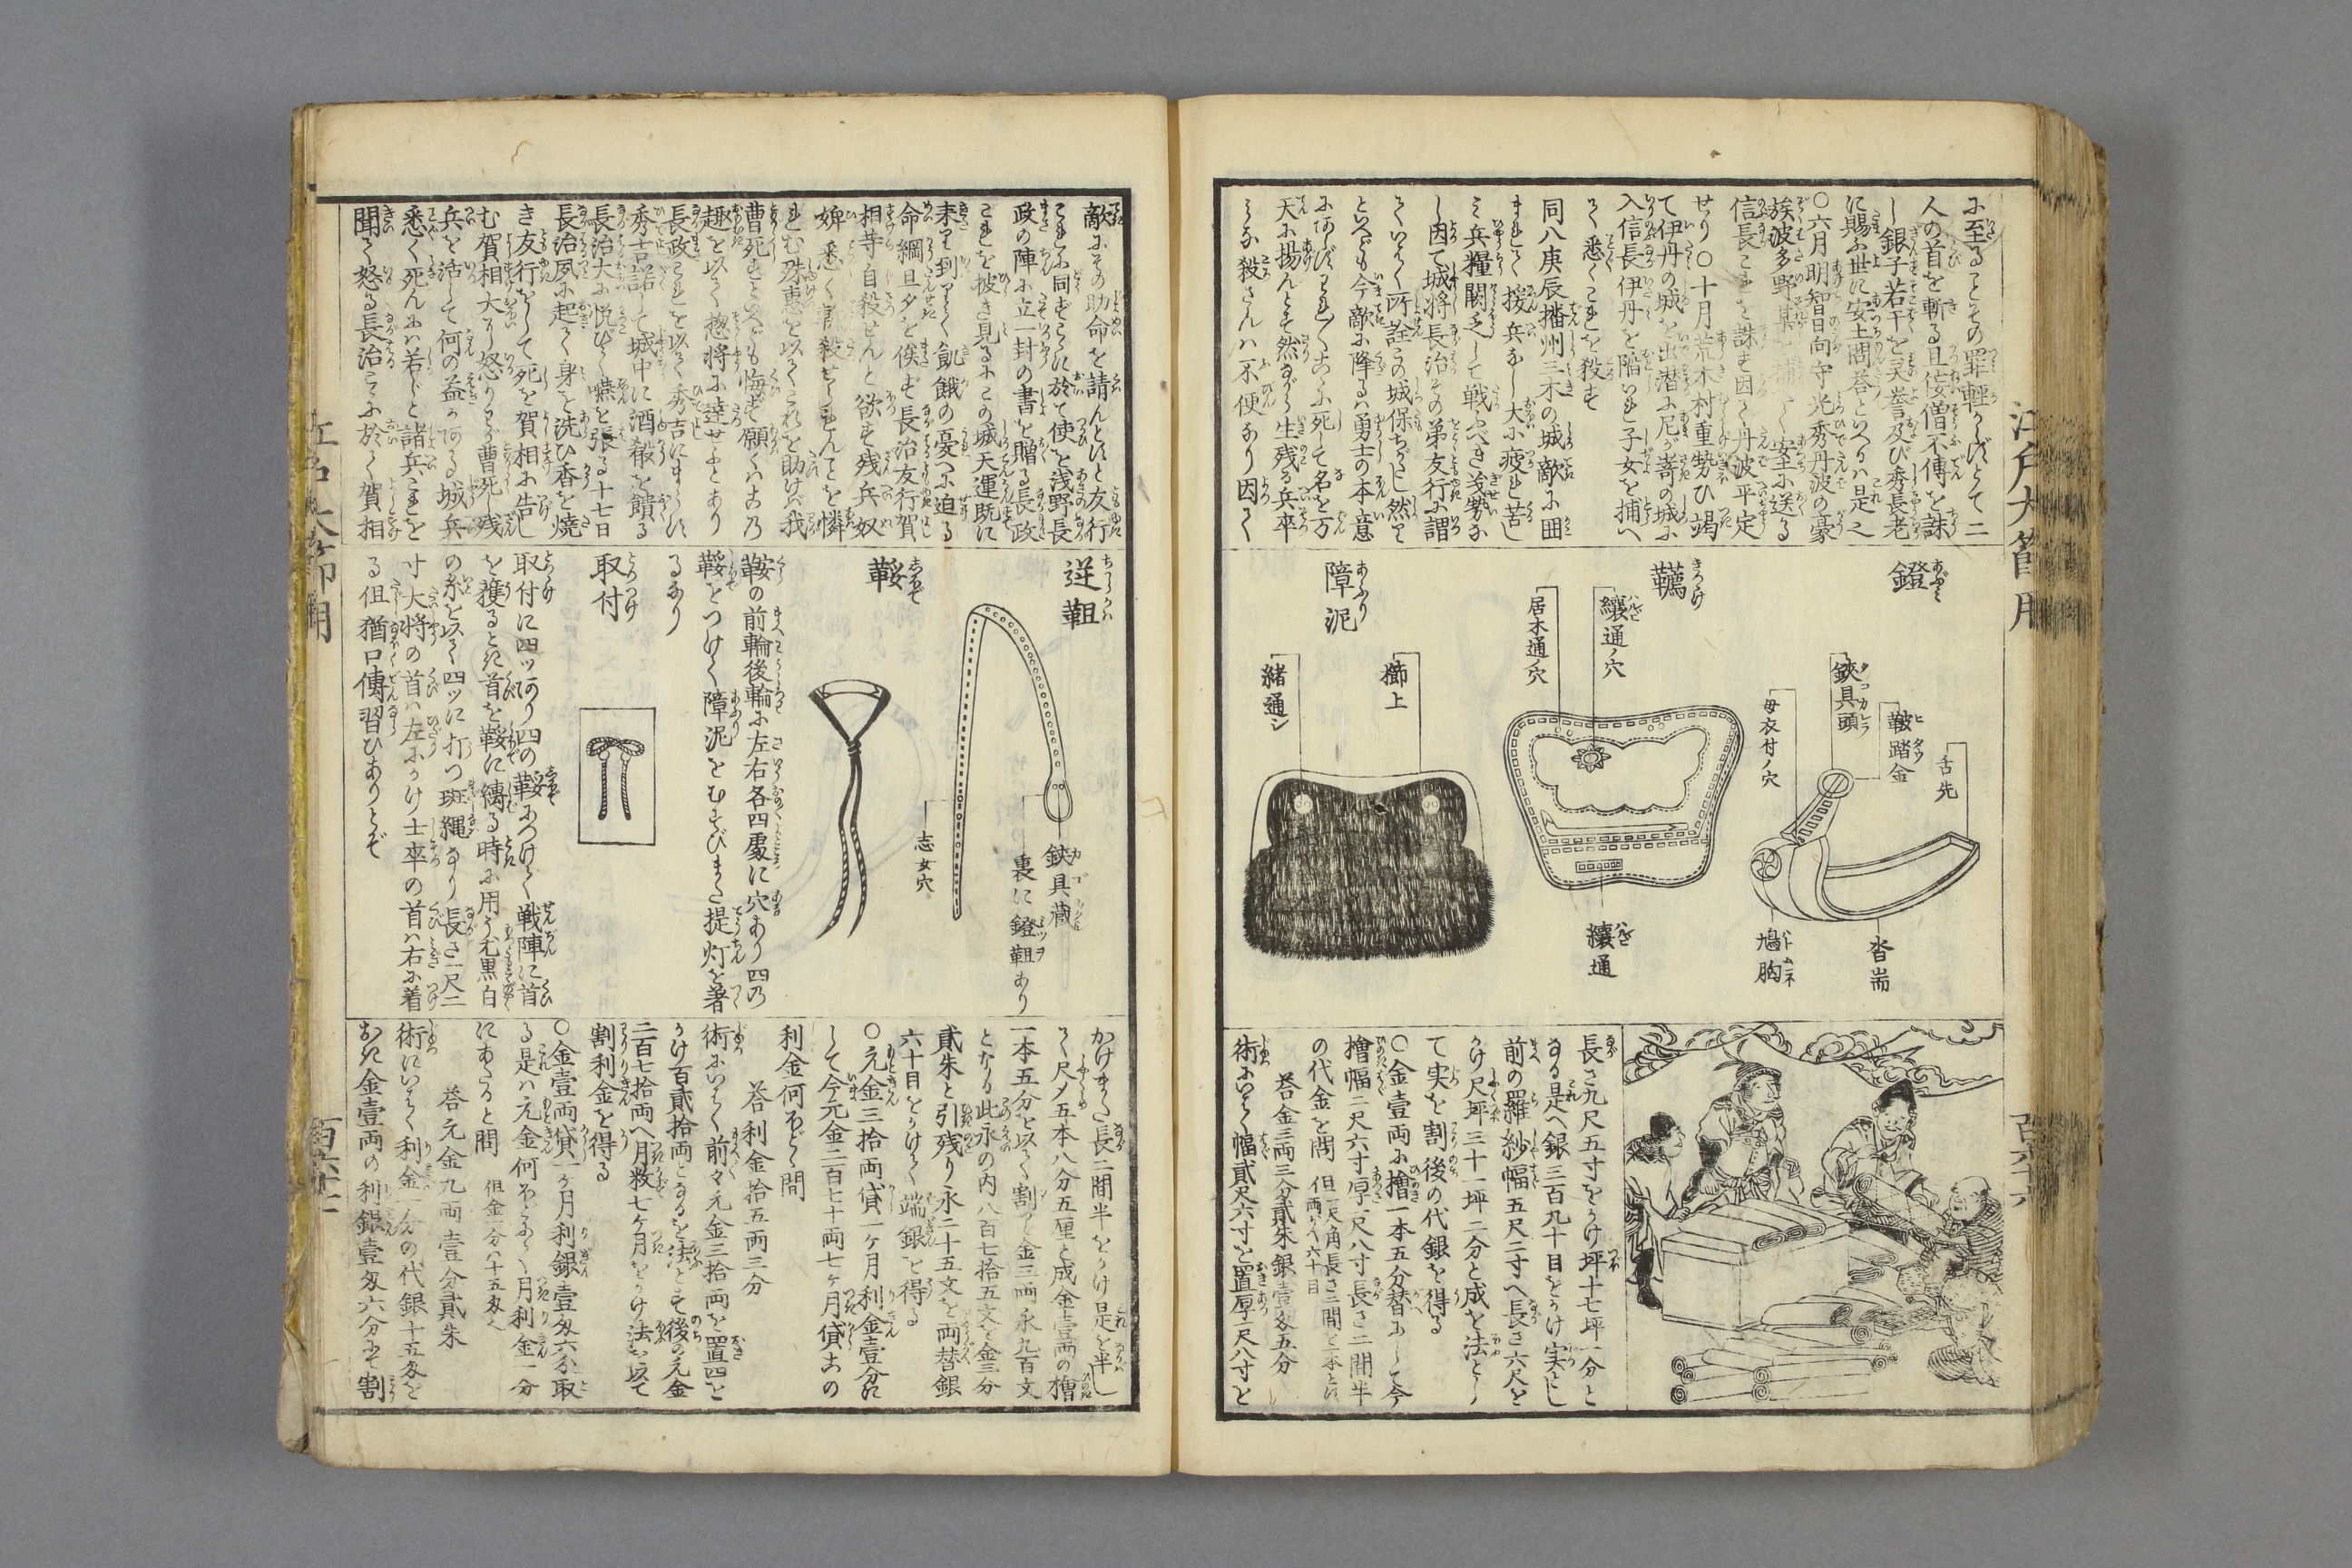 江戸大節用
に至ることその罪輕からずとて二
人の首を斬る且侫僧不傳を誅
し銀子若干を
に賜ふ世に安土問答といへるは是也
〇六月明智日向守光秀丹波の豪
族波多野某を捕へて安土に送る
信長これを誅す因て丹波平定
せり〇十月荒木村重勢ひ竭
て伊丹の城を出潜に尼が嵜の城に
入信長伊丹を陥いれ子女を捕へ
て悉くこれを殺す
同八庚辰播州三木の城敵に囲
まれて援兵なし大に疲れ苦し
み兵糧闕乏して戦ふべき勢な
し因て城将長治その弟友行に謂
ていはく所詮この城保ちがたし然り
といへども今敵に降るは勇士の本意
にあらずわれ〳〵こゝに死して名を万
天に揚んとす然ながら生残る兵卒
みな殺さんは不便なり因て
鐙
鞍踏金
舌先
鉸具頭
母衣付ノ穴
鳩胸
沓耑
韉
居木通ノ穴
障泥
櫛上
緒通シ
長さ九尺五寸をかけ坪十七坪一分と
なる是へ銀三百九十目をかけ実とし
前の羅紗幅五尺二寸へ長さ六尺を
かけ尺坪三十一坪二分と成を法とし
て実を割後の代銀を得る
〇金壹両に檜一本五分替にして今
檜幅二尺六寸厚一尺八寸長さ二間半
の代金を問 但一尺角長さ二間を一本とす 両がへ六十目
答金三両三分貳朱銀壹匁五分
術にいはく幅貳尺六寸を置厚一尺八寸を
敵にその助命を請んとすと友行
これに同ずこゝに於て使を浅野長
政の陣に立一封の書を贈る長政
これを披き見るにこの城天運既に
来り到りて飢餓の憂へに迫る
命綱旦夕を俟ず長治友行賀
相等自殺せんと欲す残兵奴
婢悉く
れむ殊惠を以てこれを助けば我
曹死すといへども悔ず願くは古乃
趣を以て惣将に達せよとあり
長政これを以て秀吉にまうす
秀吉諾して城中に酒殽を饋る
長治大に悦びて讌を張る十七日
長治夙に起て身を洗ひ香を焼
き友行をして死を賀相に告し
む賀相大に怒りわが曹死残
兵を活して何の益かある城兵
悉く死んには若じと諸兵これを
聞て怒る長治こゝに於て賀相
逆靻
鉸具蔵
裏に鐙靻あり
鞖
鞍の前輪後輪に左右各四處に穴あり四乃
鞖をつけて障泥をむすびまた提灯を著
るなり
取付
取付に四ツあり四の鞖につけて戦陣に首
を獲るとき首を鞖に縛る時に用う尤黒白
の糸を以て四ツに打つ斑縄なり長さ一尺二
寸大将の首は左にかけ士卒の首は右に着
る但猶口傳習ひありとぞ
かけまた長二間半をかけ是を半し
て尺〆五本八分五厘と成金壹両の檜
一本五分を以て割て金三両永九百文
となる此永の内八百七拾五文を金三分
貳朱と引残り永二十五文を両替銀
六十目をかけて端銀を得る
〇元金三拾両貸一ヶ月利金壹分に
して今元金二百七十両七ヶ月貸古の
利金何ほどゝ問
答利金拾五両三分
術にいはく前々元金三拾両を置四を
かけ百貳拾両となるを法とす後の元金
二百七拾両へ月数七ヶ月をかけ法を以て
割利金を得る
〇金壹両貸一ヶ月利銀壹匁六分取
る是は元金何ほどにて月利金一分
にあたると問 但金一分は十五匁也
答元金九両壹分貳朱
術にいはく利金一分の代銀十五匁を
おき金壹両の利銀壹匁六分にて割